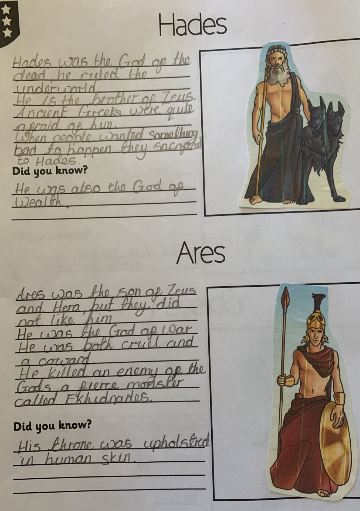 Hades
Hades was the God of the
dead, he ruled the
underworld.
He is the brother of Zeus.
Ancient Greeks were quite
afraid of him.
When people wanted something
bad to happen they sacrificed
to Hades.
Did you know?
He was also the God of
Wealth.
Ares
Ares was the son of Zeus
and Hera but they did
not like him
He was the God of War
He was both cruel and
a coward
He killed an enemy of the
Gods a fierce monster
called Ekhidnades.
Did you know?
His throne was upholstred
in human skin.